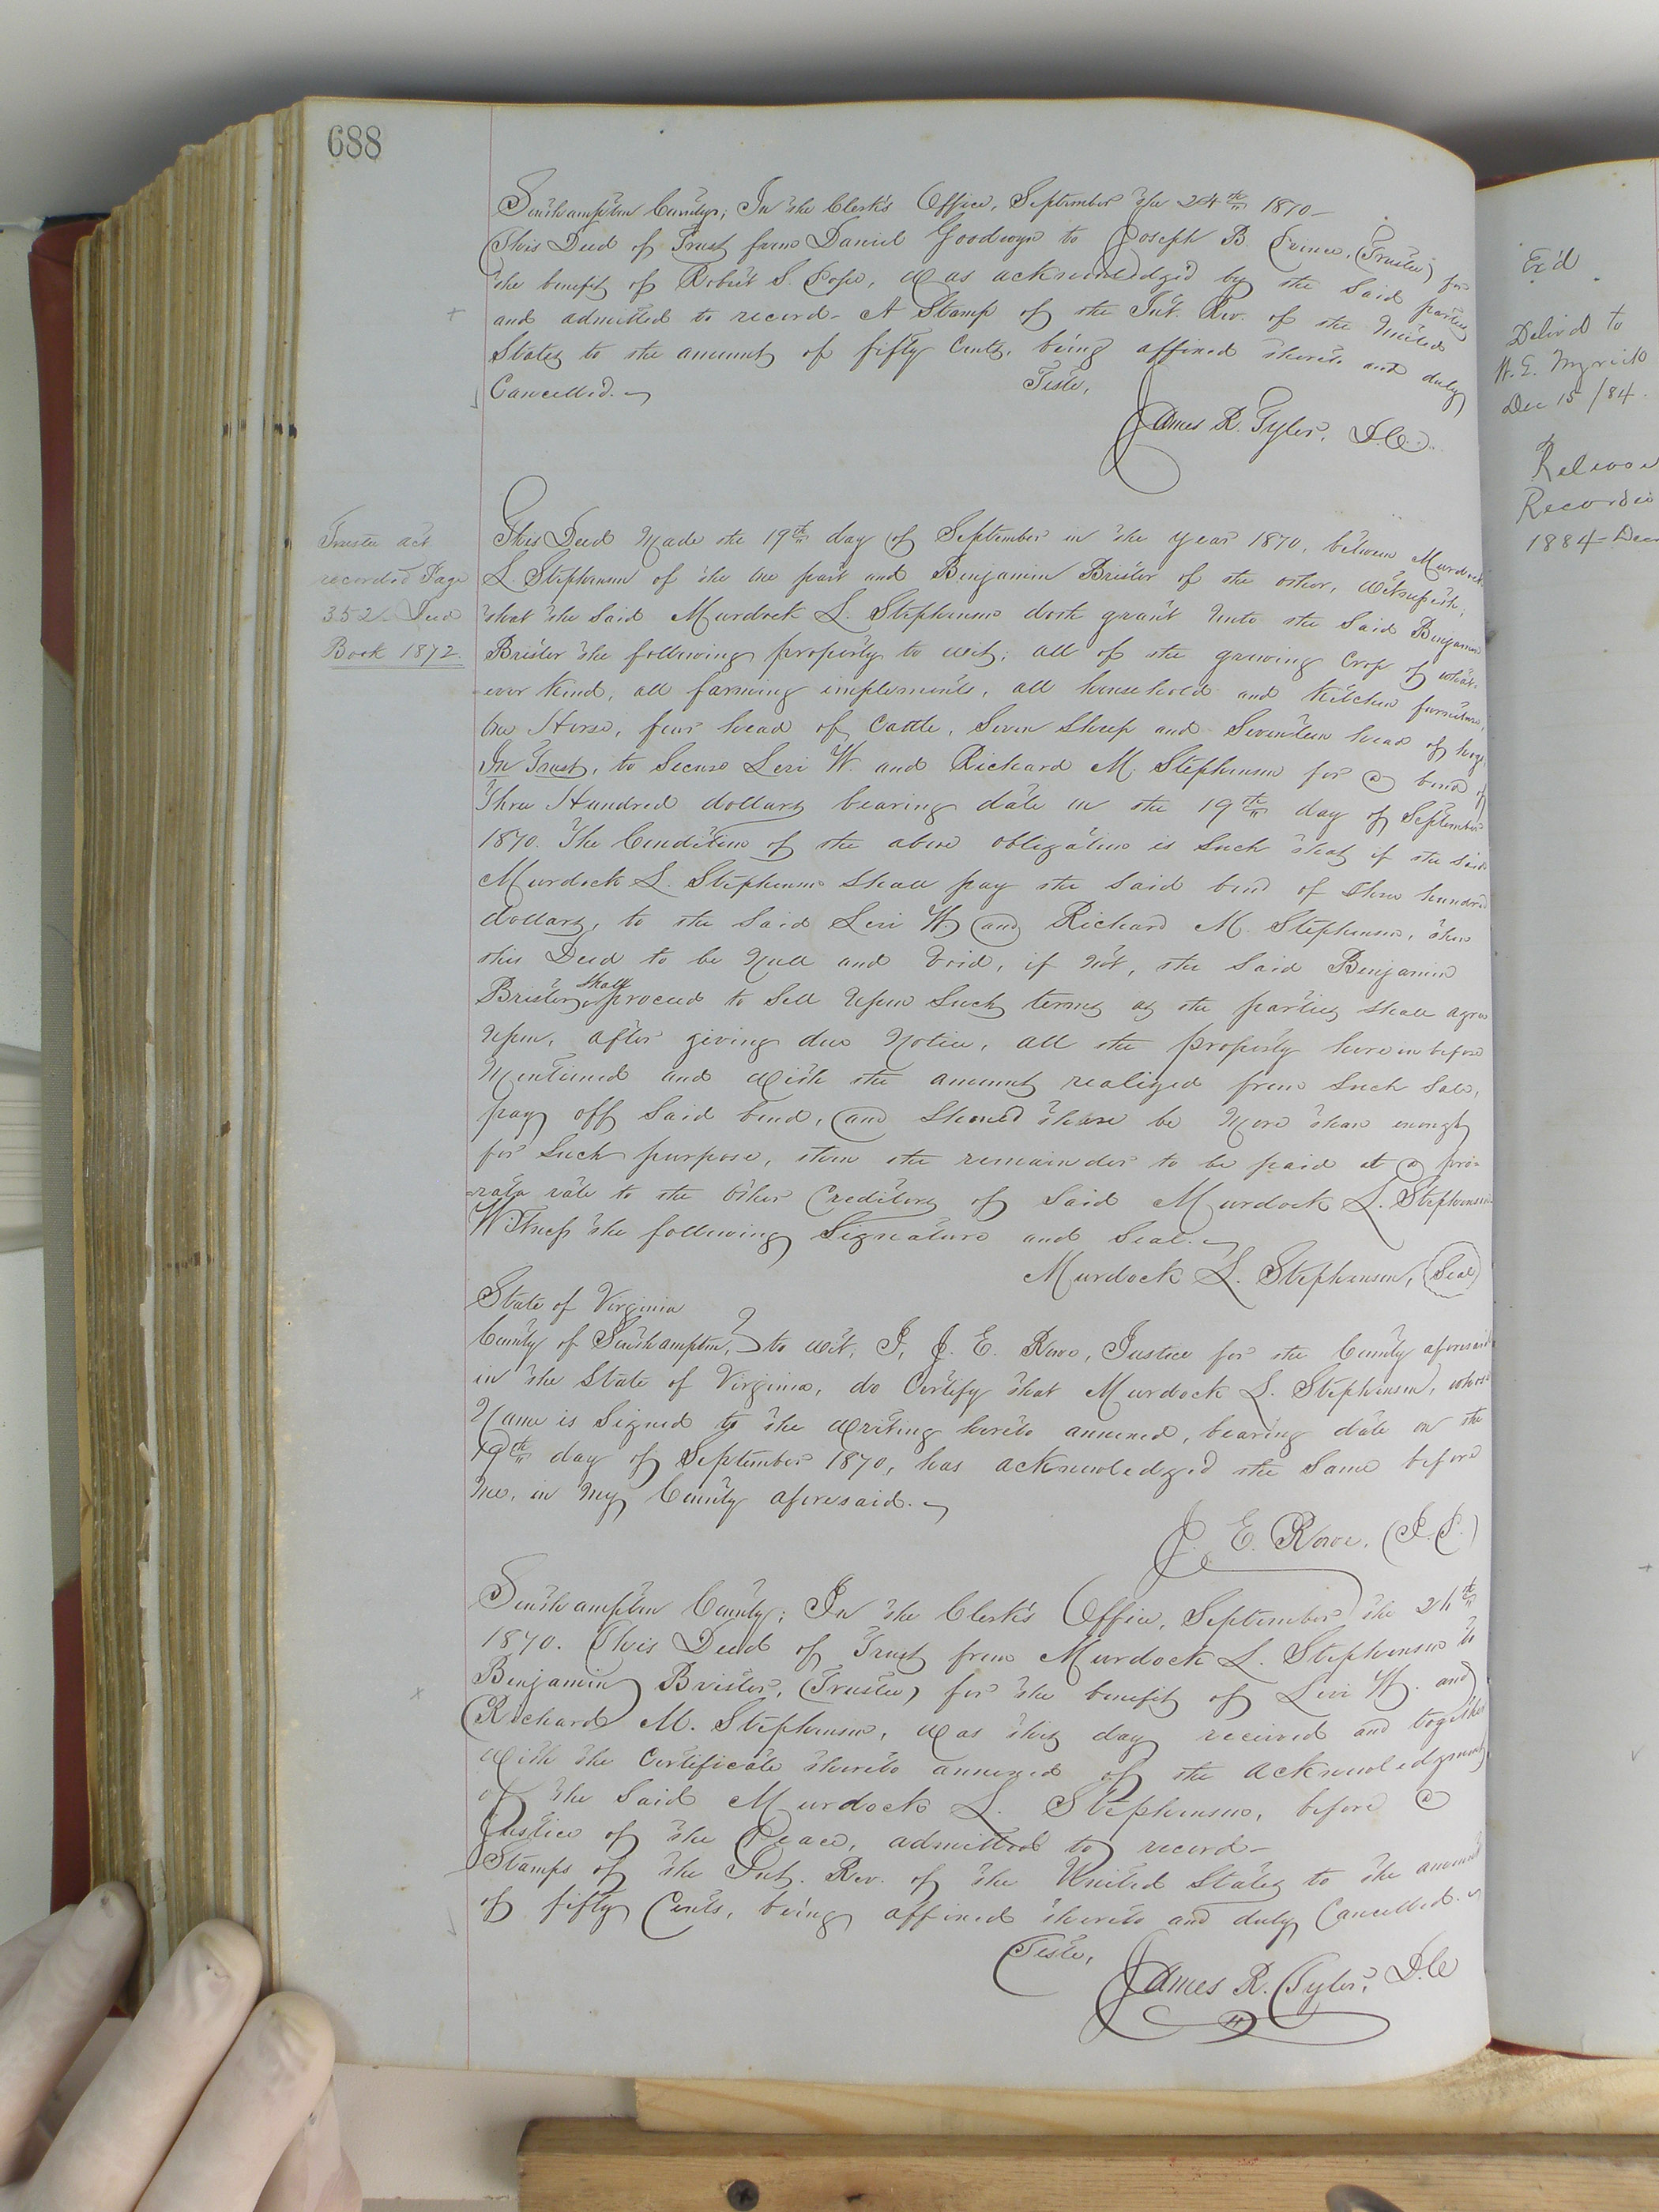 688
Southampton County; In the Clerk's Office, September the 24th 1870—
This Deed of Trust from Daniel Goodwyn to Joseph B. Prince, (Trustee) for
the benefit of Robert S. Pope, was acknowledged by the said parties
and admitted to record— A Stamp of the Int. Rev. of the United
States to the amount of fifty Cents, being affixed thereto and duly
Cancelled.
Teste,
James R. Tyler, D.C.
Trustee act.
recorded Page
352 Deed
Book 1872.
This Deed Made the 19th day of September in the year 1870, between Murdock
L. Stephenson of the one part and Benjamin Brister of the other, Witnesseth;
that the said Murdock L. Stephenson doth grant unto the said Benjamin
Brister the following property to wit; all of the growing Crop of what-
-ever Kind, all farming implements, all household and Kitchen furniture,
One Horse, four head of Cattle, Seven Sheep and Seventeen head of hogs
In Trust, to secure Levi W. and Richard M. Stephenson for a bond of
Three Hundred dollars bearing date on the 19th day of September
1870. The Condition of the above obligation is such that if the said
Murdock L. Stephenson shall pay the said bond of three hundred
dollars, to the said Levi W. and Richard M. Stephenson, then
this Deed to be Null and Void, if Not, the said Benjamin
Brister, shall proceed to sell upon such terms as the parties shall agree
upon, after giving due Notice, all the property hereinbefore
Mentioned and with the amount realized from such sale,
pay off said bond, and should there be More than enough
for such purpose, then the remainder to be paid at a pro-
-rata rate to the other Creditors of said Murdock L. Stephenson
Witness the following Signature and Seal.
Murdock L. Stephenson, (Seal)
State of Virginia
County of Southampton, to wit, I, J. E. Rowe, Justice for the County aforesaid
in the State of Virginia, do Certify that Murdock L. Stephenson, whose
Name is Signed to the Writing hereto annexed, bearing date on the
19th day of September 1870, has acknowledged the same before
me, in My County aforesaid.
J. E. Rowe, (J.P.)
Southampton County; In the Clerk's Office, September the 24th
1870. This Deed of Trust from Murdock L. Stephenson to
Benjamin Brister, (Trustee) for the benefit of Levi W. and
Richard M. Stephenson, was this day received and together
with the Certificate thereto annexed of the acknowledgment
of the said Murdock L. Stephenson, before a
Justice of the Peace, admitted to record—
Stamps of the Int. Rev. of the United States to the amount
of fifty Cents, being affixed thereto and duly Cancelled.
Teste,
James R. Tyler, D.C
Ex'd
Deliv'd to
Dec 15/84.
Release
Recorded
1884 Dec